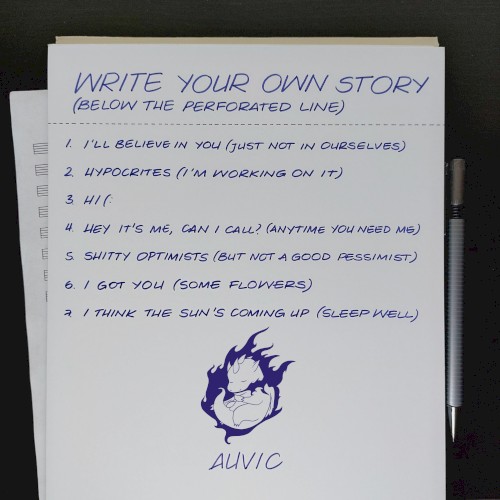 WRITE YOUR OWN STORY
(BELOW THE PERFORATED LINE)
1. I'LL BELIEVE IN YOU (JUST NOT IN OURSELVES)
2. HYPOCRITES (I'M WORKING ON IT)
3 HI (:
4. HEY IT'S ME, CAN I CALL? (ANYTIME YOU NEED ME)
5. SHITTY OPTIMISTS (BUT NOT A GOOD PESSIMIST)
6. I GOT YOU (SOME FLOWERS)
7. I THINK THE SUN'S COMING UP (SLEEP WELL)
AUVIC